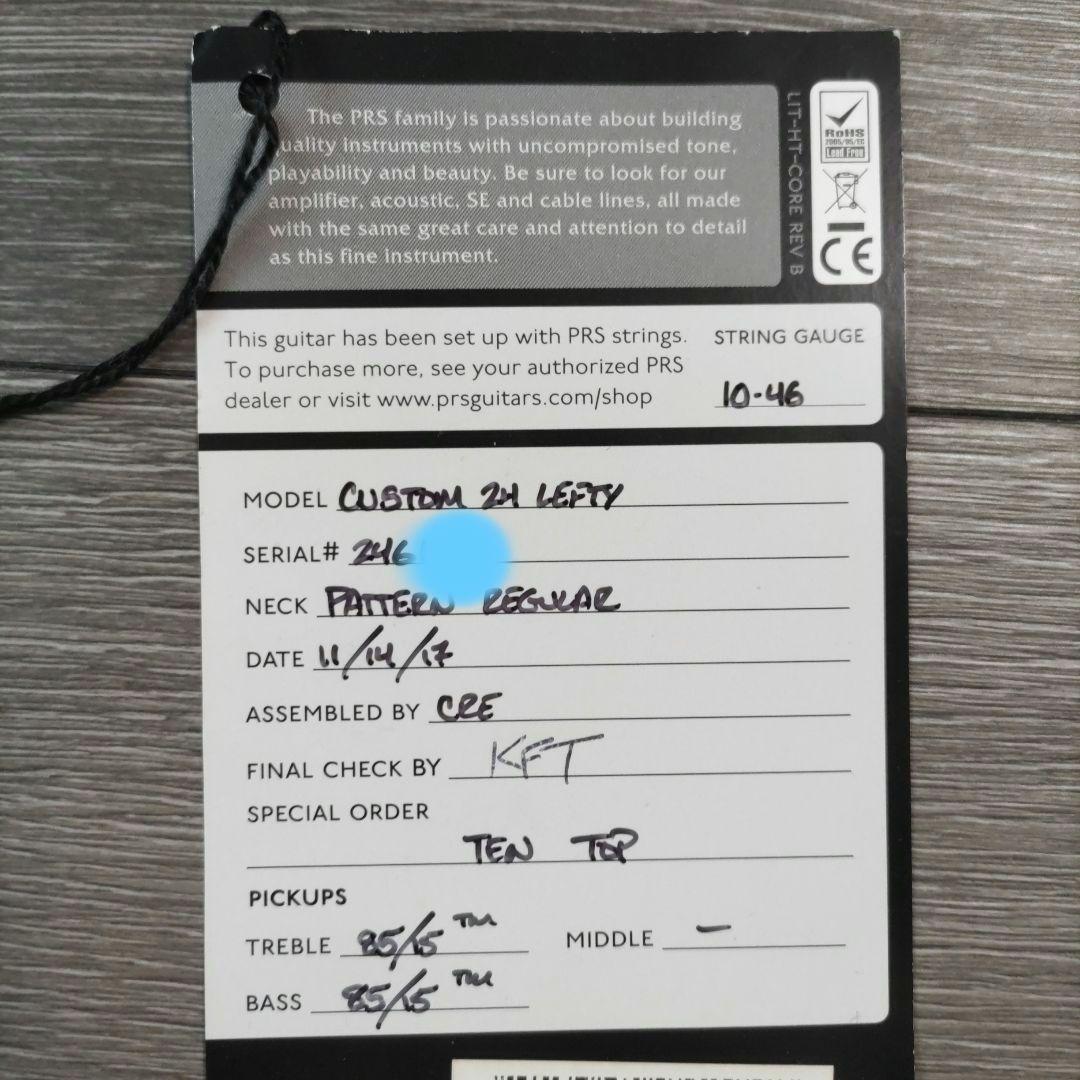 The PRS family is passionate about building
uality instruments with uncompromised tone,
playability and beauty. Be sure to look for our
amplifier, acoustic, SE and cable lines, all made
with the same great care and attention to detail
as this fine instrument.
LIT-HT-CORE REV B
RoHS
2005/95/EC
Lead Free
CE
This guitar has been set up with PRS strings.
To purchase more, see your authorized PRS
dealer or visit www.prsguitars.com/shop
STRING GAUGE
10-46
MODEL CUSTOM 24 LEFTY
SERIAL# 246
NECK PATTERN REGULAR
DATE 11/14/17
ASSEMBLED BY CRE
FINAL CHECK BY KFT
SPECIAL ORDER
TEN TOP
PICKUPS
TREBLE 85/15 TM MIDDLE –
BASS 85/15 TM